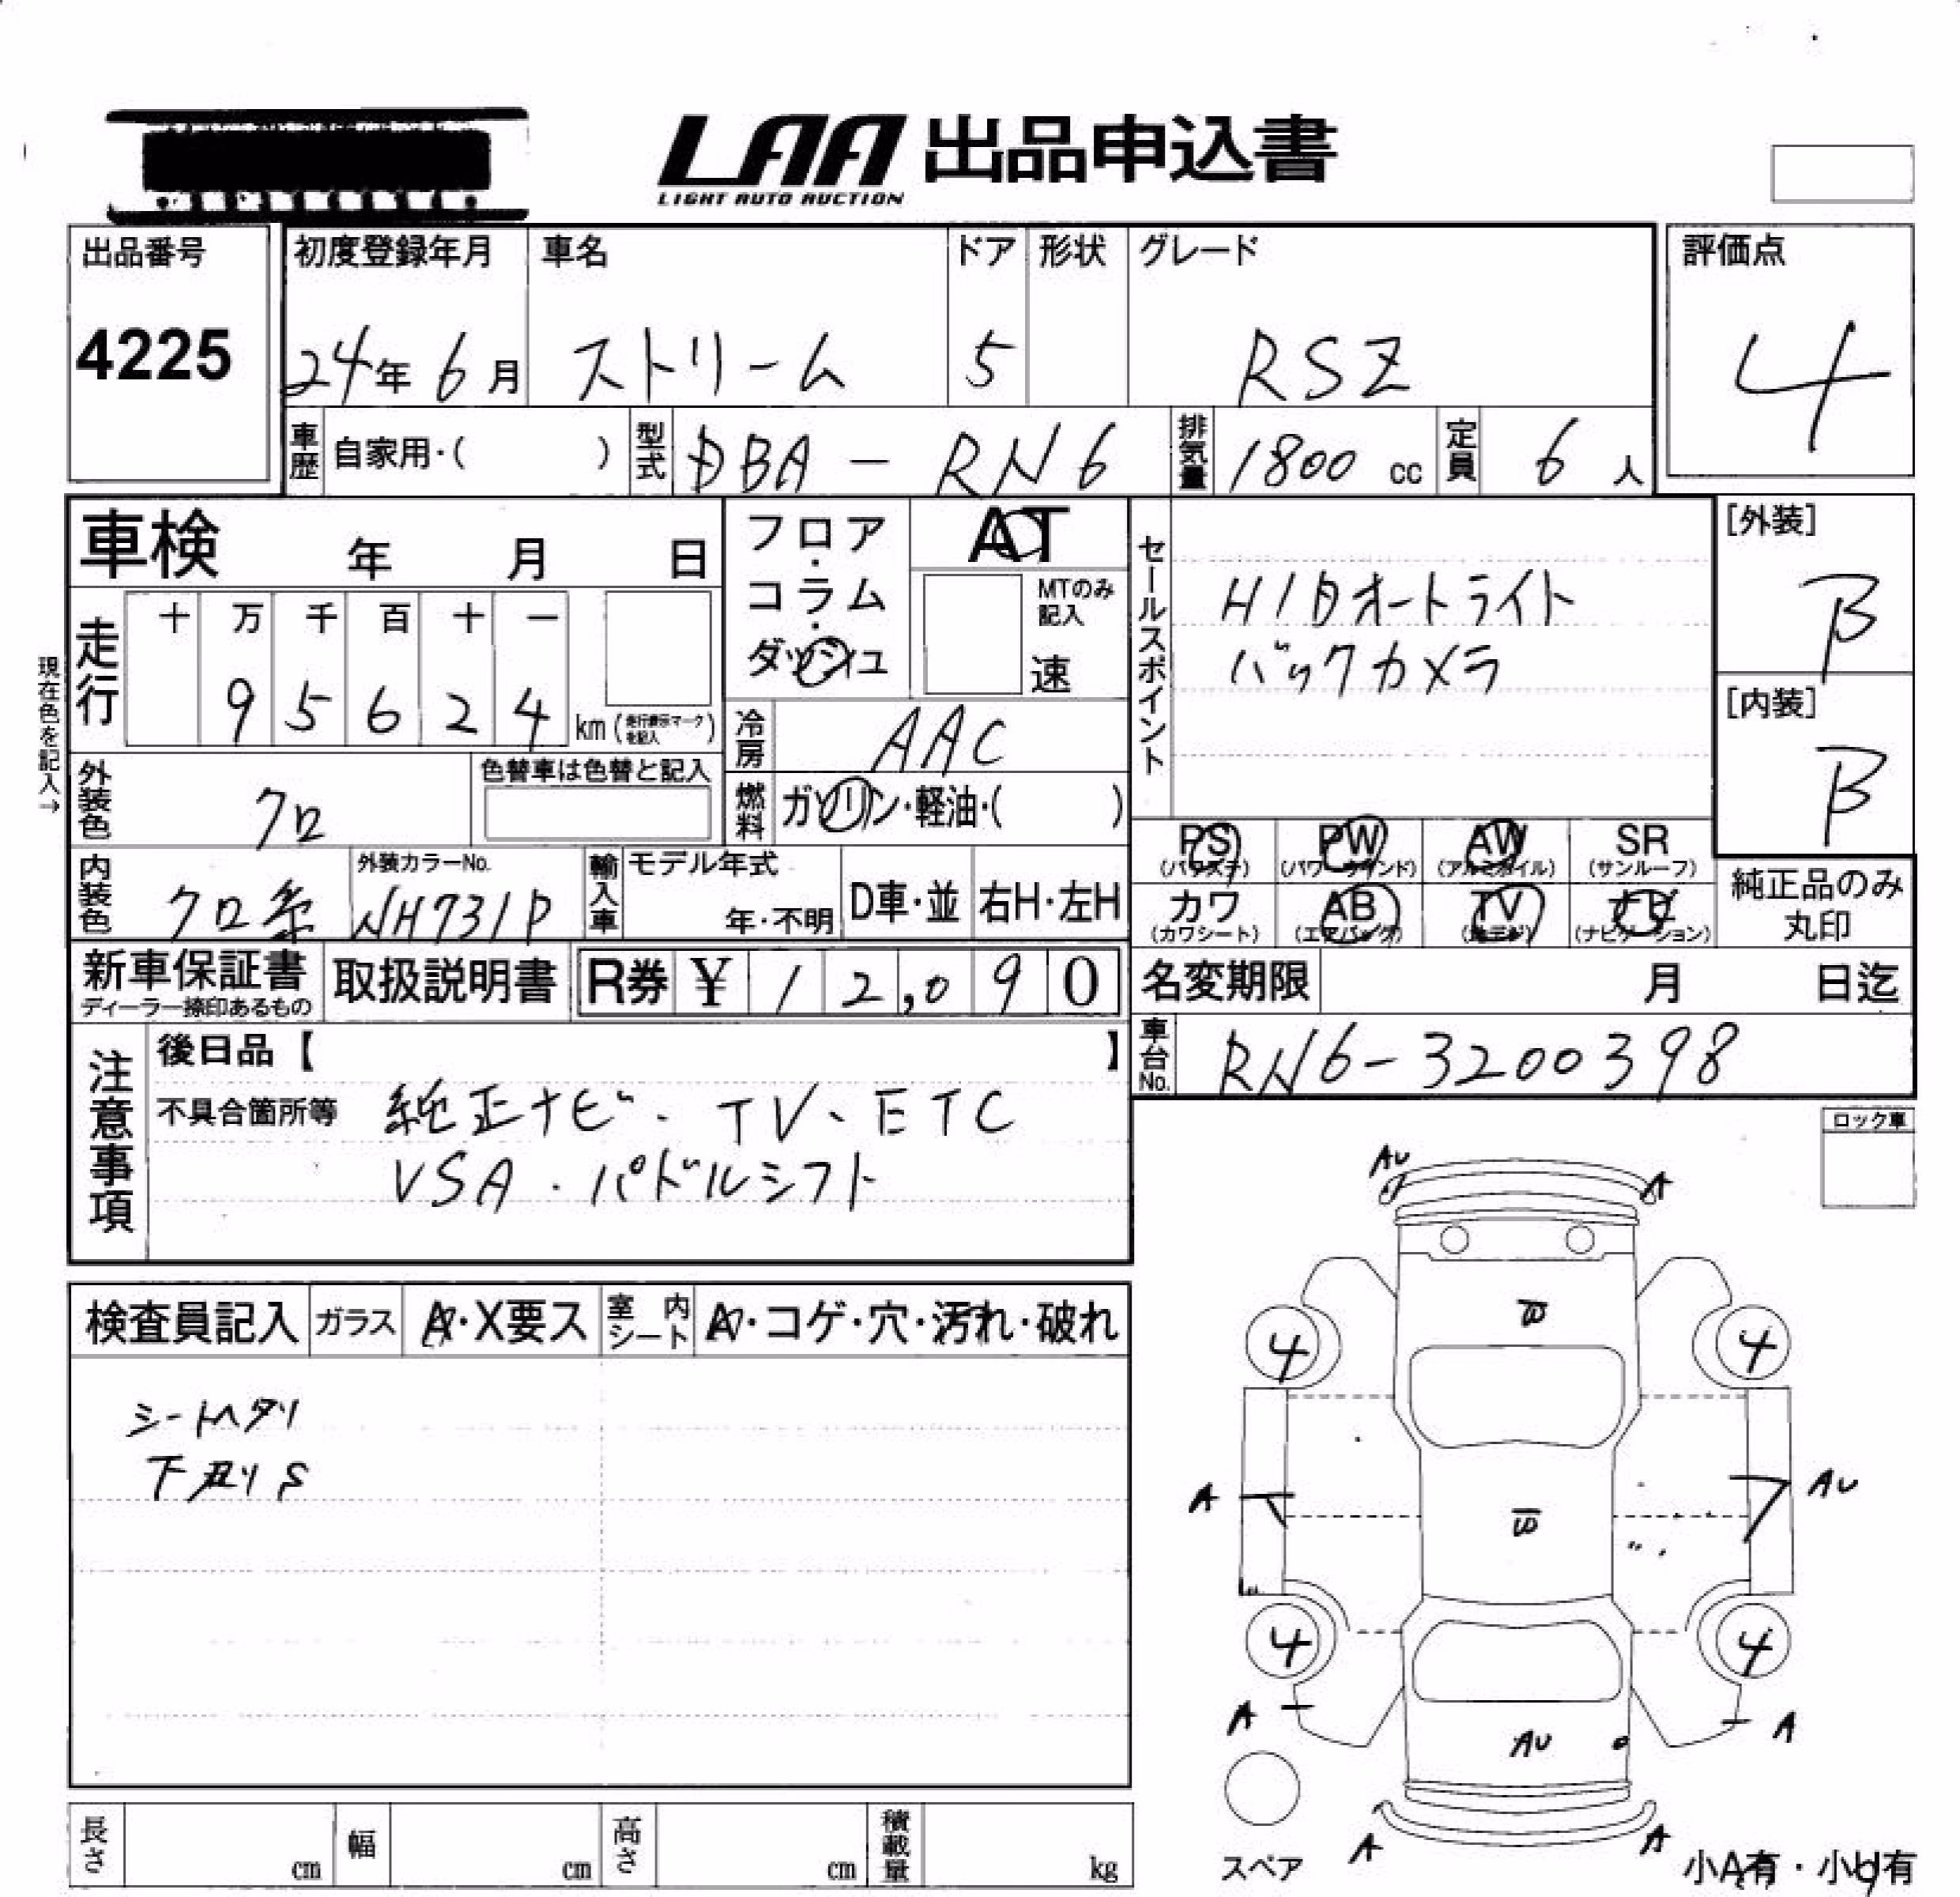 LAA 出品申込書
LIGHT AUTO AUCTION
出品番号
4225
初度登録年月
24年 6月
車名
ストリーム
ドア
5
形状
グレード
RSZ
評価点
4
車歴 自家用・( )
型式 DBA - RN6
排気量 1800 cc
定員 6 人
車検 年 月 日
フロア・コラム・ダッシュ
AT
MTのみ記入
速
セールスポイント
HIDオートライト
バックカメラ
[外装]
B
[内装]
B
現在色を記入→
走行
十 万 千 百 十 一
9 5 6 2 4 km (走行表示マークを記入)
冷房 AAC
外装色 クロ
色替車は色替と記入
燃料 ガソリン・軽油・( )
PS (パワステ)
PW (パワーウインド)
AW (アルミホイル)
SR (サンルーフ)
カワ (カワシート)
AB (エアバック)
TV (地デジ)
ナビ (ナビゲーション)
純正品のみ丸印
内装色 クロ系
外装カラーNo. NH731P
輸入車
モデル年式
年・不明
D車・並
右H・左H
新車保証書
ディーラー捺印あるもの
取扱説明書
R券 ¥ 12,090
名変期限 月 日迄
車台No. RN6-3200398
注意事項
後日品【 】
不具合箇所等 純正ナビ・TV・ETC
VSA・パドルシフト
ロック車
検査員記入
ガラス A・X要ス
室内シート A・コゲ・穴・汚れ・破れ
シートヘタリ
下廻りS
AU
A
B
4
4
A
AU
B
4
4
A
AU
A
A
A
スペア
小A有・小U有
長さ cm
幅 cm
高さ cm
積載量 kg